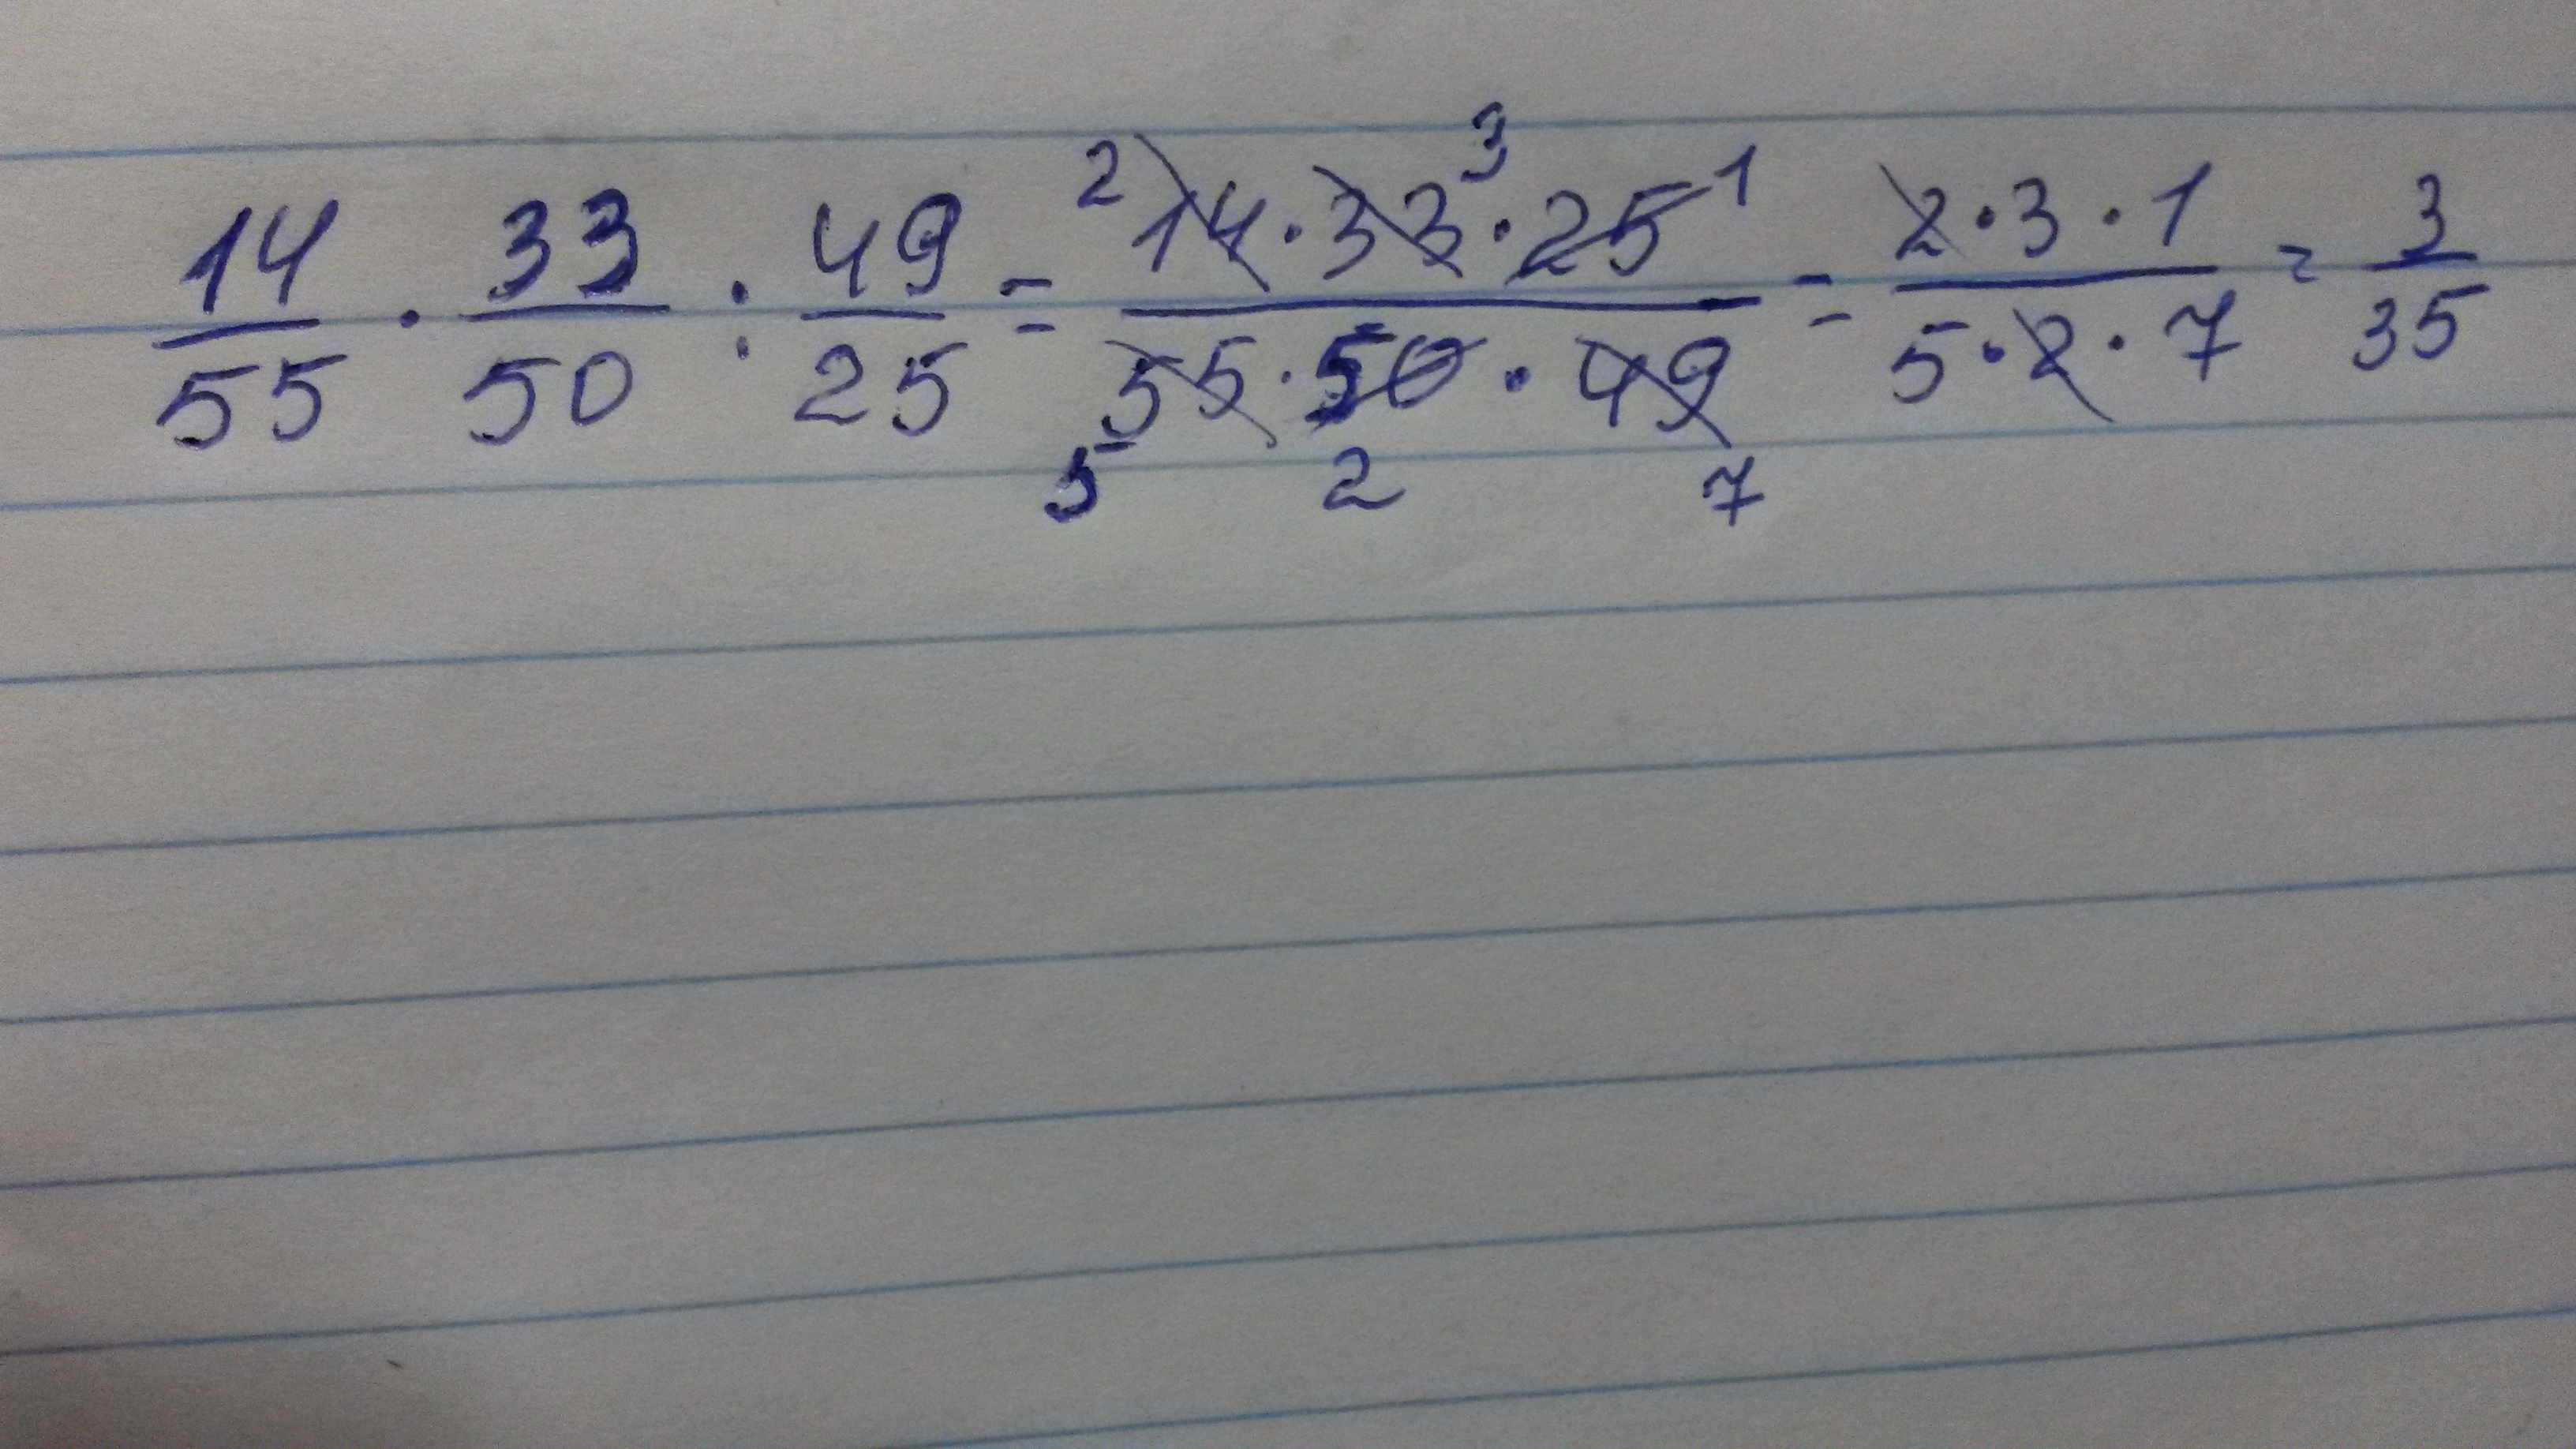 14/55 · 33/50 : 49/25 = 2 14 · 33 3 · 25 1 / 55 5 · 50 2 · 49 7 = 2 · 3 · 1 / 5 · 2 · 7 = 3/35